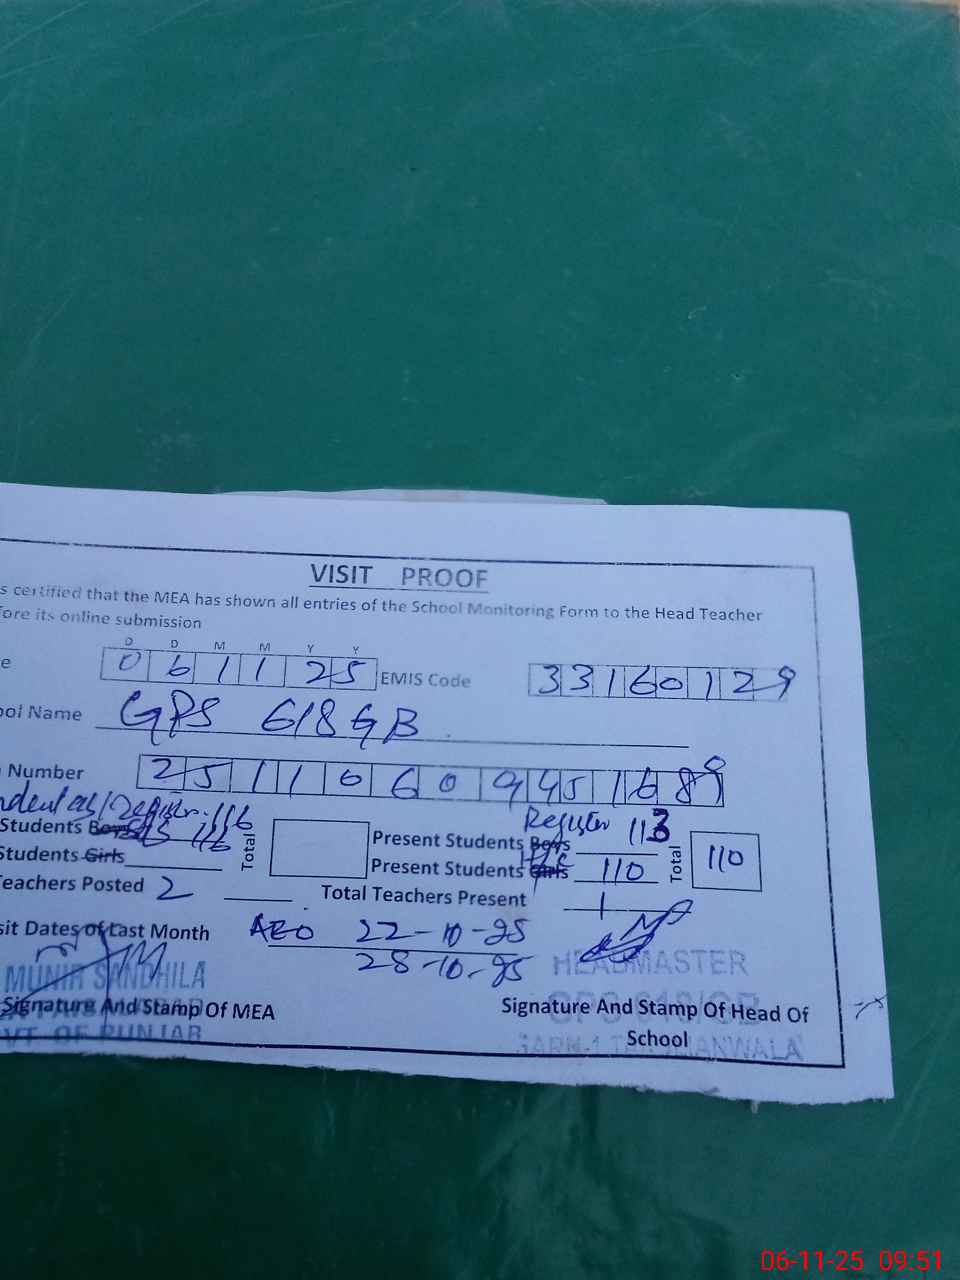 VISIT PROOF
s certified that the MEA has shown all entries of the School Monitoring Form to the Head Teacher
fore its online submission
D D M M Y Y
e 0 6 1 1 2 5 EMIS Code 3 3 1 6 0 1 2 9
ool Name GPS 618 GB
Number 2 5 1 1 0 6 0 9 4 5 1 6 8 9
Register 113
Students Boys 116 Total Present Students Boys
Students Girls Present Students Girls 110 Total 110
Teachers Posted 2 Total Teachers Present 1
sit Dates of Last Month AEO 22-10-25
28-10-25
MUNIR SANDHILA HEADMASTER
Signature And Stamp Of MEA Signature And Stamp Of Head Of
School
GPS 618/GB
VT OF PUNJAB
06-11-25 09:51